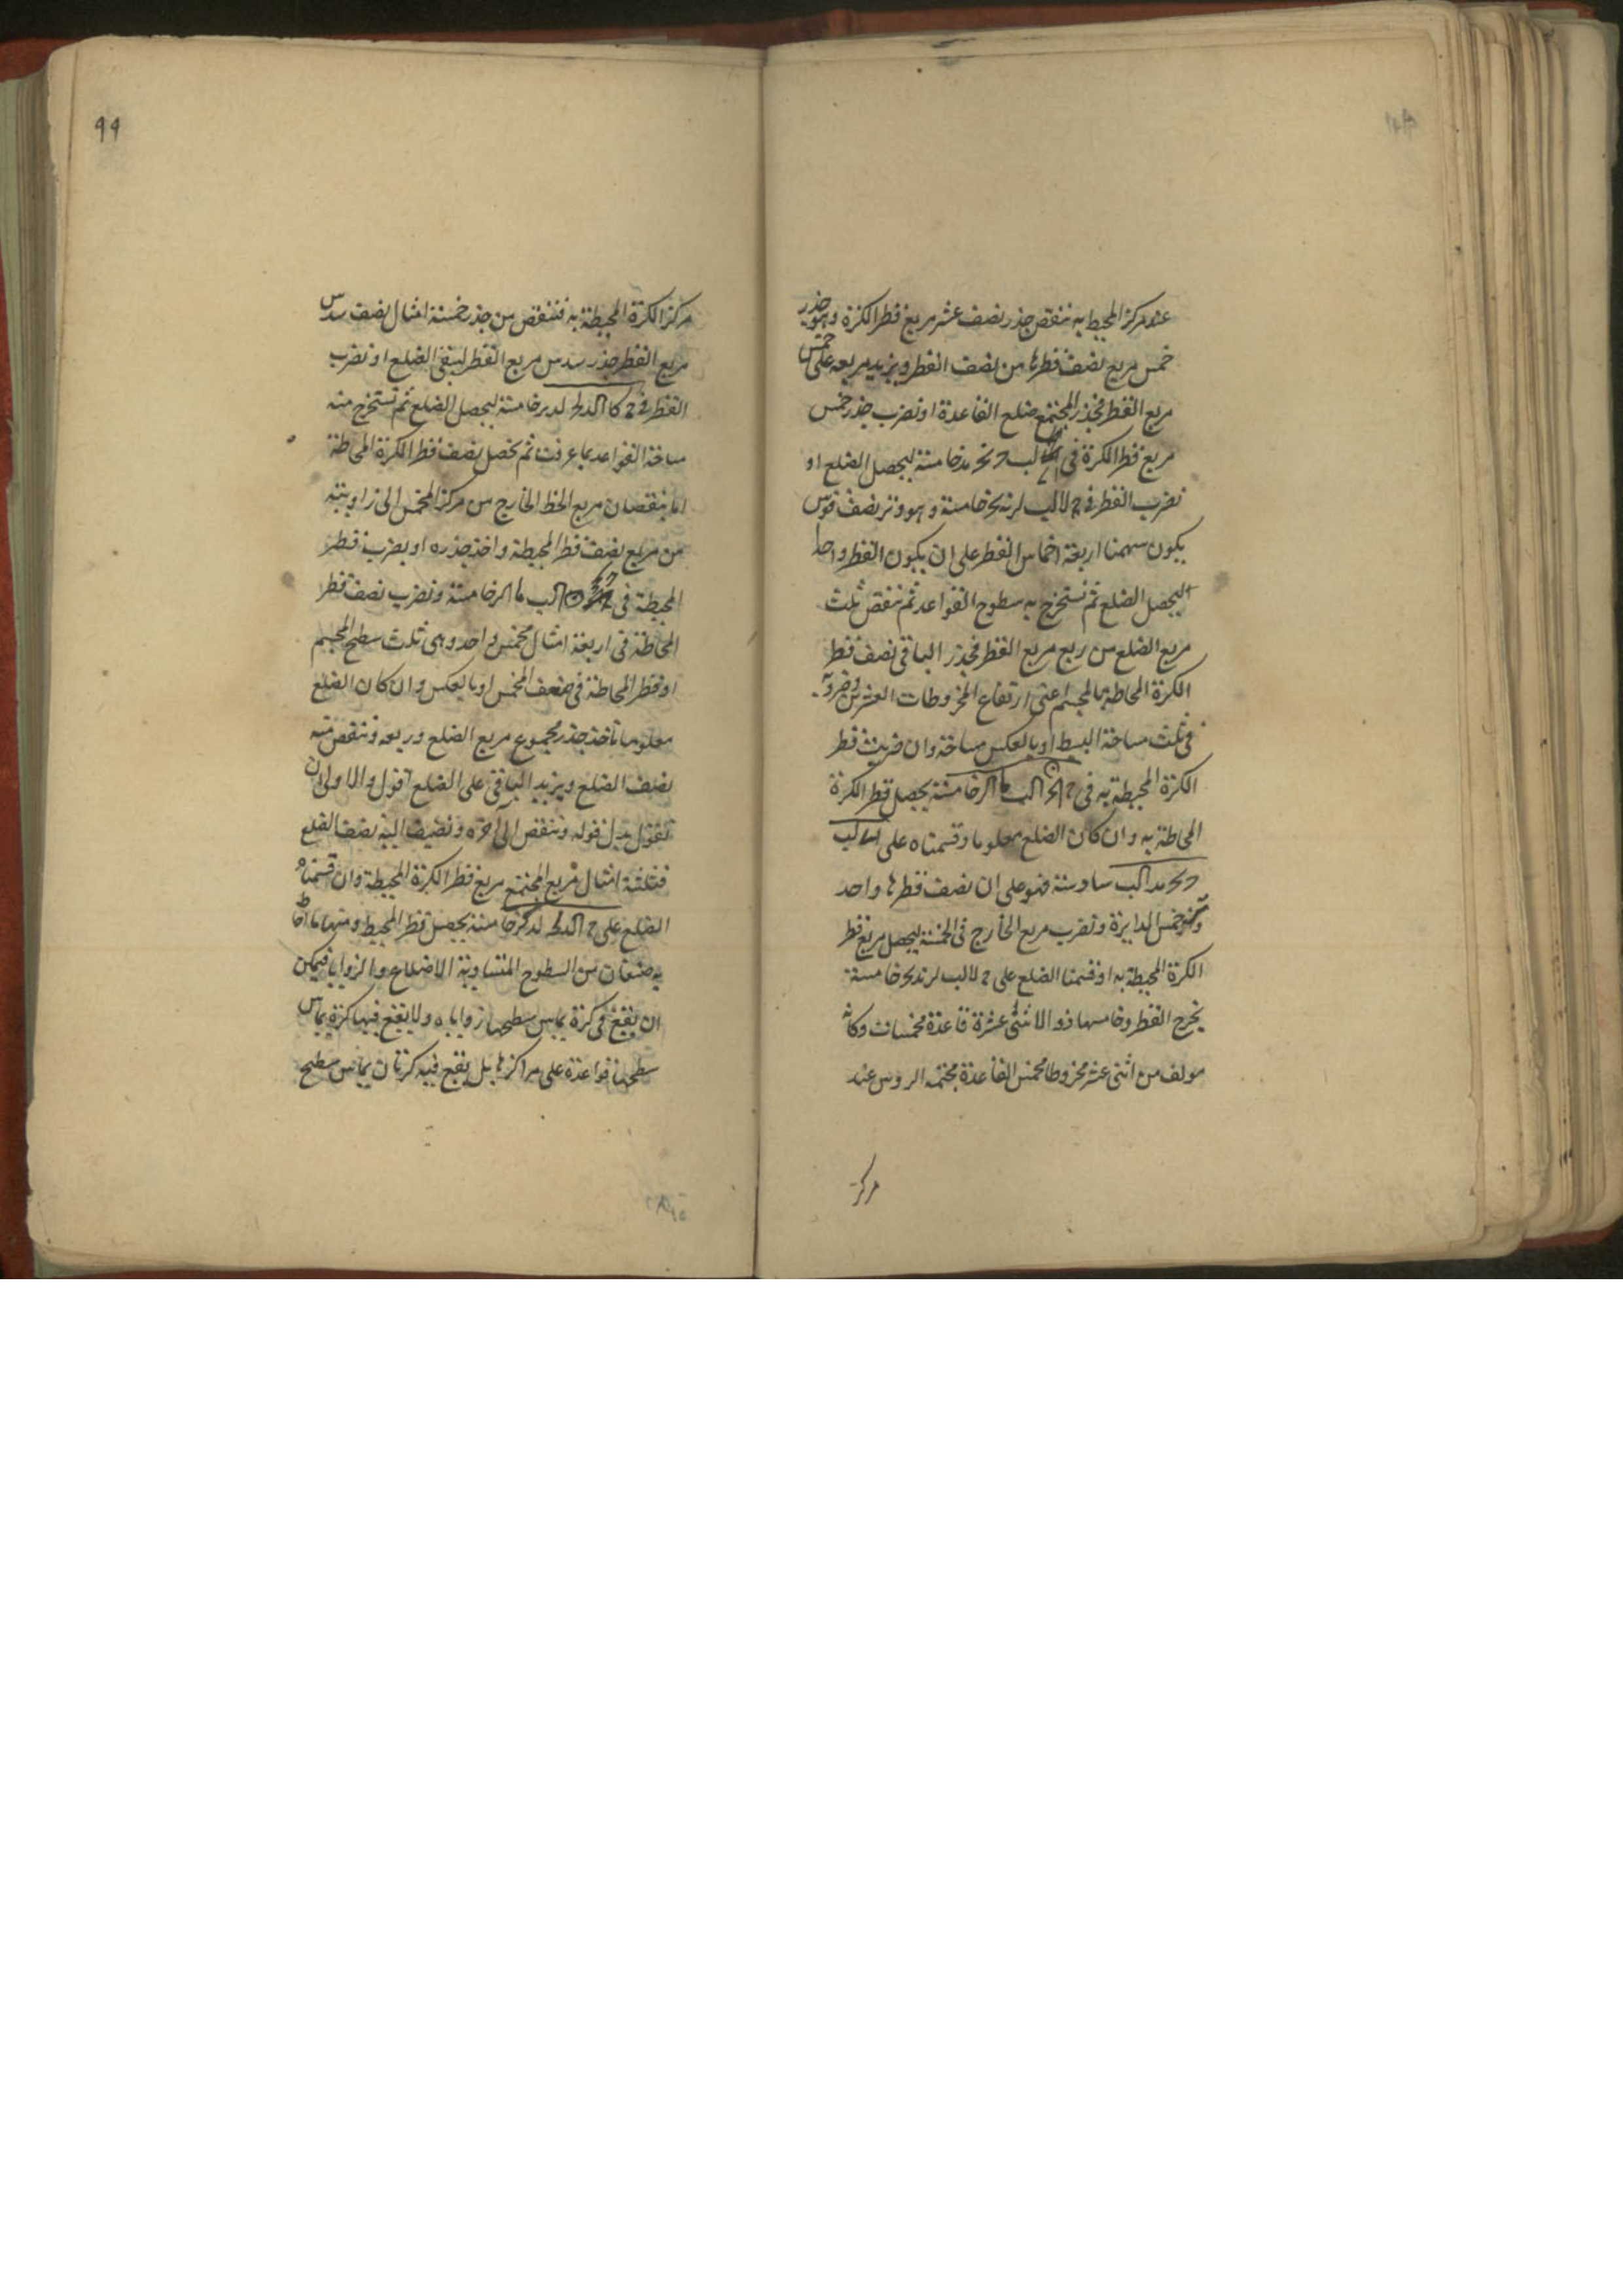 عند مركز المحيط به ننقص جذر نصف عشر مربع قطر الكرة وهو جذر
خمس مربع نصف قطرها من نصف القطر ويزيد مربعه على خمس
مربع القطر فجذر المجتمع ضلع القاعدة او نضرب جذر خمس
مربع قطر الكرة في خامسة ليحصل الضلع او
نضرب القطر في خامسة وهو وتر نصف قوس
يكون سهمنا اربعة اخماس القطر على ان يكون القطر واحدا
ليحصل الضلع ثم نستخرج به سطوح القواعد ثم ننقص ثلث
مربع الضلع من ربع مربع القطر فجذر الباقي نصف قطر
الكرة المحاطة بالمجسم اعني ارتفاع المخروطات العشرين وضربه
في ثلث مساحة البسيط او بالعكس مساحته وان ضربت قطر
الكرة المحيطة به في خامسة يحصل قطر الكرة
المحاطة به وان كان الضلع معلوما وقسمناه على
سادسة فهو على ان نصف قطرها واحد
وتر خمس الدايرة ونضرب مربع الخارج في الخمسة ليحصل مربع قطر
الكرة المحيطة به او قسمنا الضلع على خامسة
يخرج القطر وخامسها ذو الاثنتى عشرة قاعدة مخمسات وكانه
مولف من اثنى عشر مخروطا مخمس القاعدة مجتمعه الروس عند
مركز
٩٩
مركز الكرة المحيطة به فننقص من جذر خمسة امثال نصف سدس
مربع القطر جذر سدس مربع القطر ليبقى الضلع او نضرب
القطر في خامسة ليحصل الضلع ثم نستخرج منه
مساحة القواعد بما عرفت ثم نحصل نصف قطر الكرة المحاطة
اما بنقصان مربع الخط الخارج من مركز المخمس الى زاويته
من مربع نصف قطر المحيطة واخذ جذره او بضرب قطر
المحيطة في خامسة ونضرب نصف قطر
المحاطة في اربعة امثال مخمس واحد وهى ثلث سطح المجسم
او قطر المحاطة في ضعف المخمس او بالعكس وان كان الضلع
معلوما ناخذ جذر مجموع مربع الضلع وربعه وننقص منه
نصف الضلع ويزيد الباقي على الضلع اقول والاولى ان
نقول بدل قوله وننقص الى اخره ونضيف اليه نصف الضلع
فثلثة امثال مربع المجتمع مربع قطر الكرة المحيطة وان قسمناه
الضلع على خامسة يحصل قطر المحيط ومنها ما احاط
به صنفان من السطوح المتساوية الاضلاع والزوايا فيمكن
ان يقع في كرة يماس سطحها زواياه ولا يقع فيها كرة يماس
سطحها قواعده على مراكزها بل يقع فيه كرتان يماس سطح